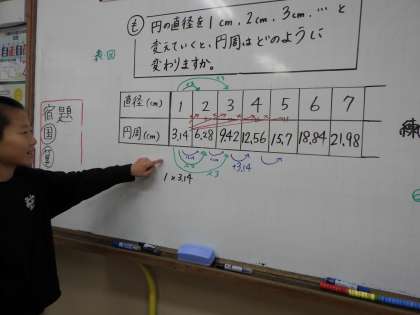 も 円の直径を1cm、2cm、3cm、…と
変えていくと、円周はどのように
変わりますか。
表図
宿題
国
算
直径(cm) 1 2 3 4 5 6 7
円周(cm) 3.14 6.28 9.42 12.56 15.7 18.84 21.98
×3
+3.14
1×3.14